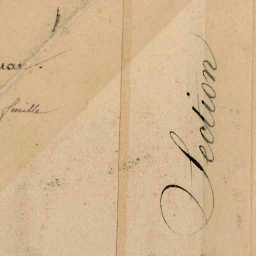 feuille
Section